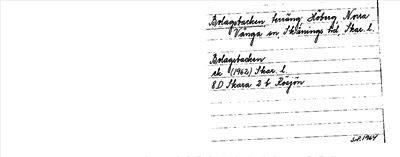 Bolagsbacken terräng, Höberg, Norra
Vånga sn, Skånings hd, Skar. l.
Bolagsbacken
ek (1962) Skar. l.
8D Skara 2 f Rösjön
S.P. 1964